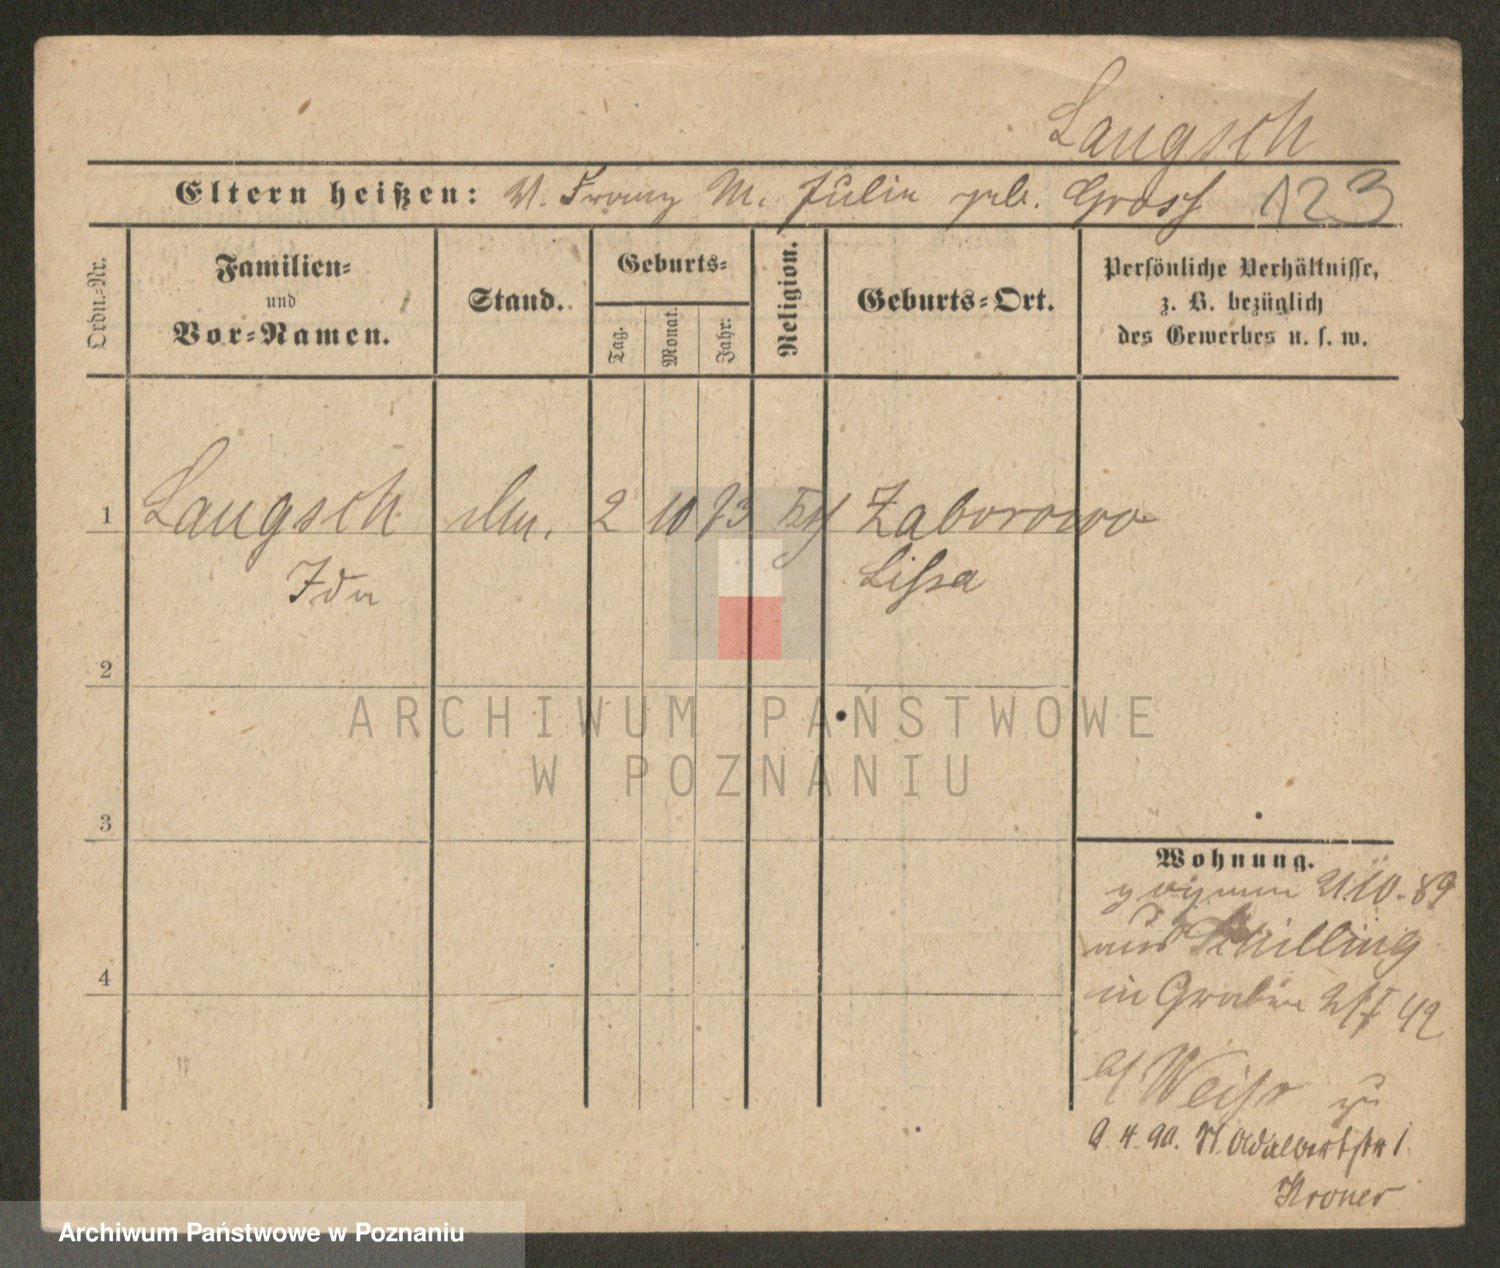 Langsch
Eltern heißen: V. Franz M. Julie geb. Gross 123
Ordn.-Nr.
Familien-
und
Vor-Namen.
Stand.
Geburts-
Tag.
Monat.
Jahr.
Religion.
Geburts-Ort.
Persönliche Verhältnisse,
z. B. bezüglich
des Gewerbes u. s. w.
1 Langsch 2 10 73 Zaborowo
Ida Lissa
2
3
4
Wohnung.
21.10.89
aus Schilling
in Graben
Weiss zu
9.4.90. St. Adalbertstr 1
Kroner
ARCHIWUM PAŃSTWOWE
W POZNANIU
Archiwum Państwowe w Poznaniu